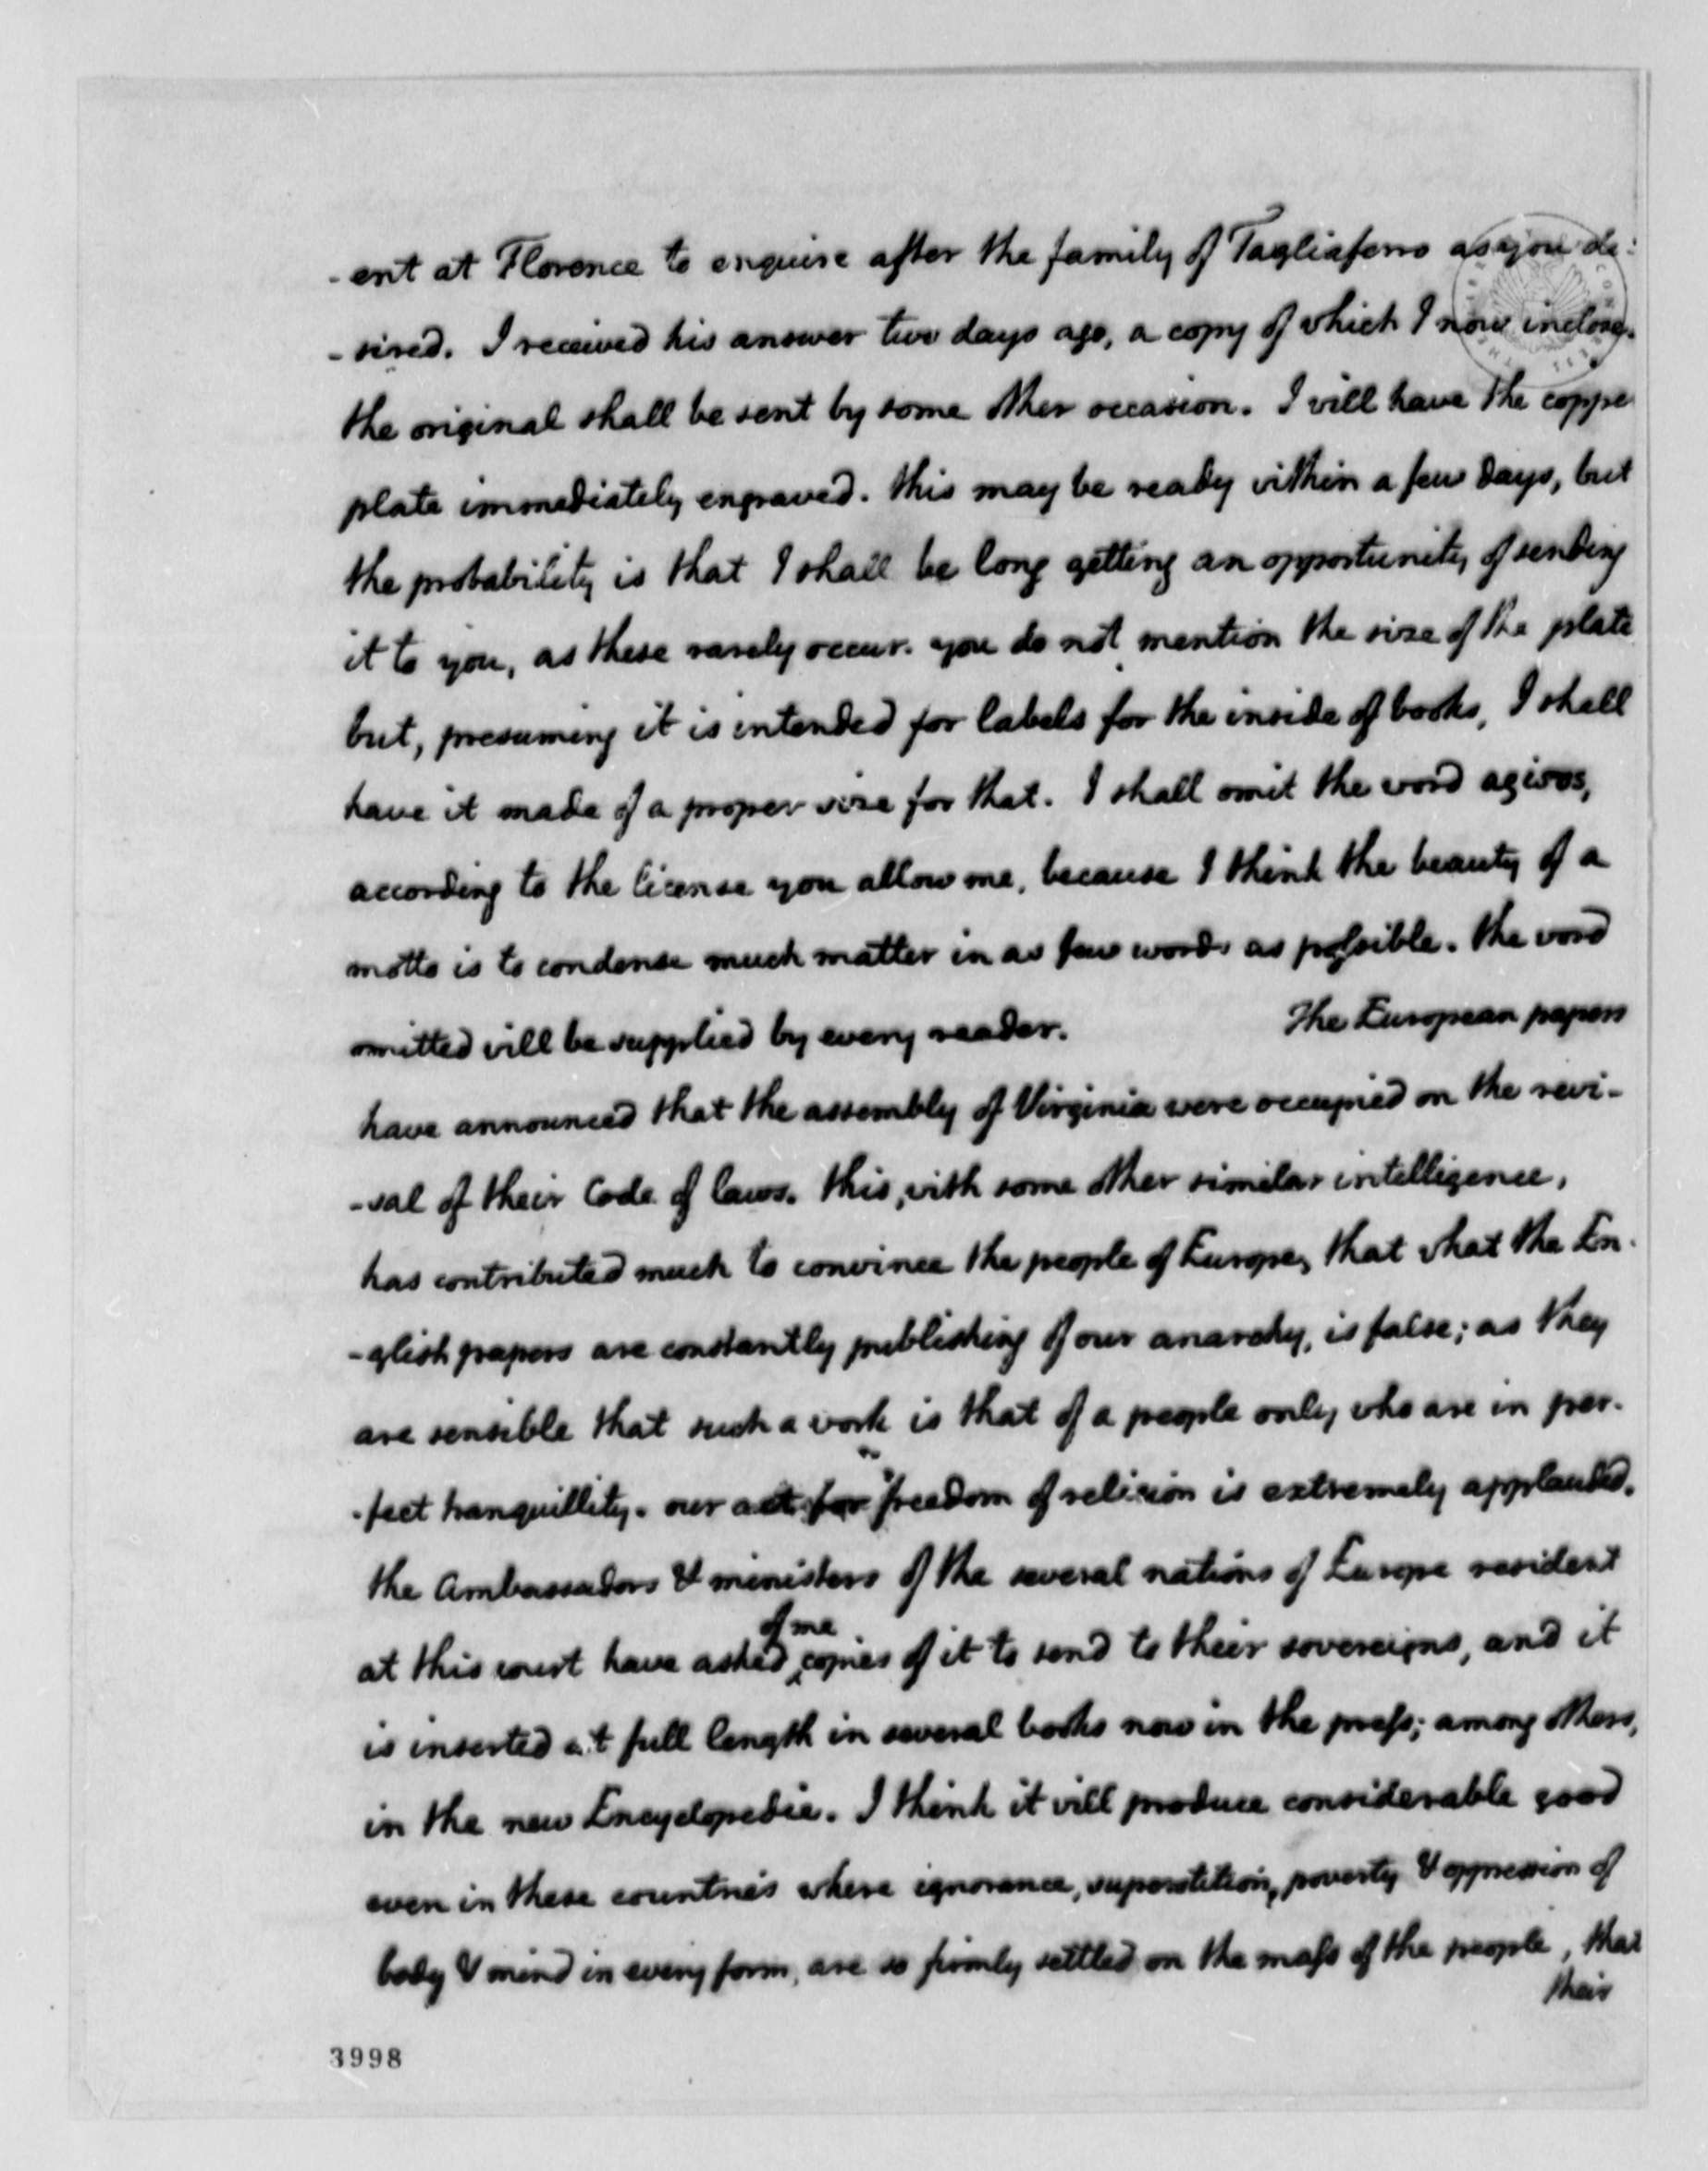 - ent at Florence to enquire after the family of Tagliaferro as you de-
- sired. I received his answer two days ago, a copy of which I now inclose.
the original shall be sent by some other occasion. I will have the coppe
plate immediately engraved. this may be ready within a few days, but
the probability is that I shall be long getting an opportunity of sending
it to you, as these rarely occur. you do not mention the size of the plate
but, presuming it is intended for labels for the inside of books, I shall
have it made of a proper size for that. I shall omit the word
according to the license you allow me, because I think the beauty of a
motto is to condense much matter in as few words as possible. the word
omitted will be supplied by every reader. The European papers
have announced that the assembly of Virginia were occupied on the revi-
-sal of their Code of laws. this, with some other similar intelligence,
has contributed much to convince the people of Europe, that what the En-
-glish papers are constantly publishing of our anarchy, is false; as they
are sensible that such a work is that of a people only who are in per-
-fect tranquillity. our act for freedom of religion is extremely applauded.
the Ambassadors & ministers of the several nations of Europe resident
at this court have asked of me copies of it to send to their sovereigns, and it
is inserted at full length in several books now in the press; among others,
in the new Encyclopedie. I think it will produce considerable good
even in these countries where ignorance, superstition, poverty & oppression of
body & mind in every form, are so firmly settled on the mass of the people, that
their
3998